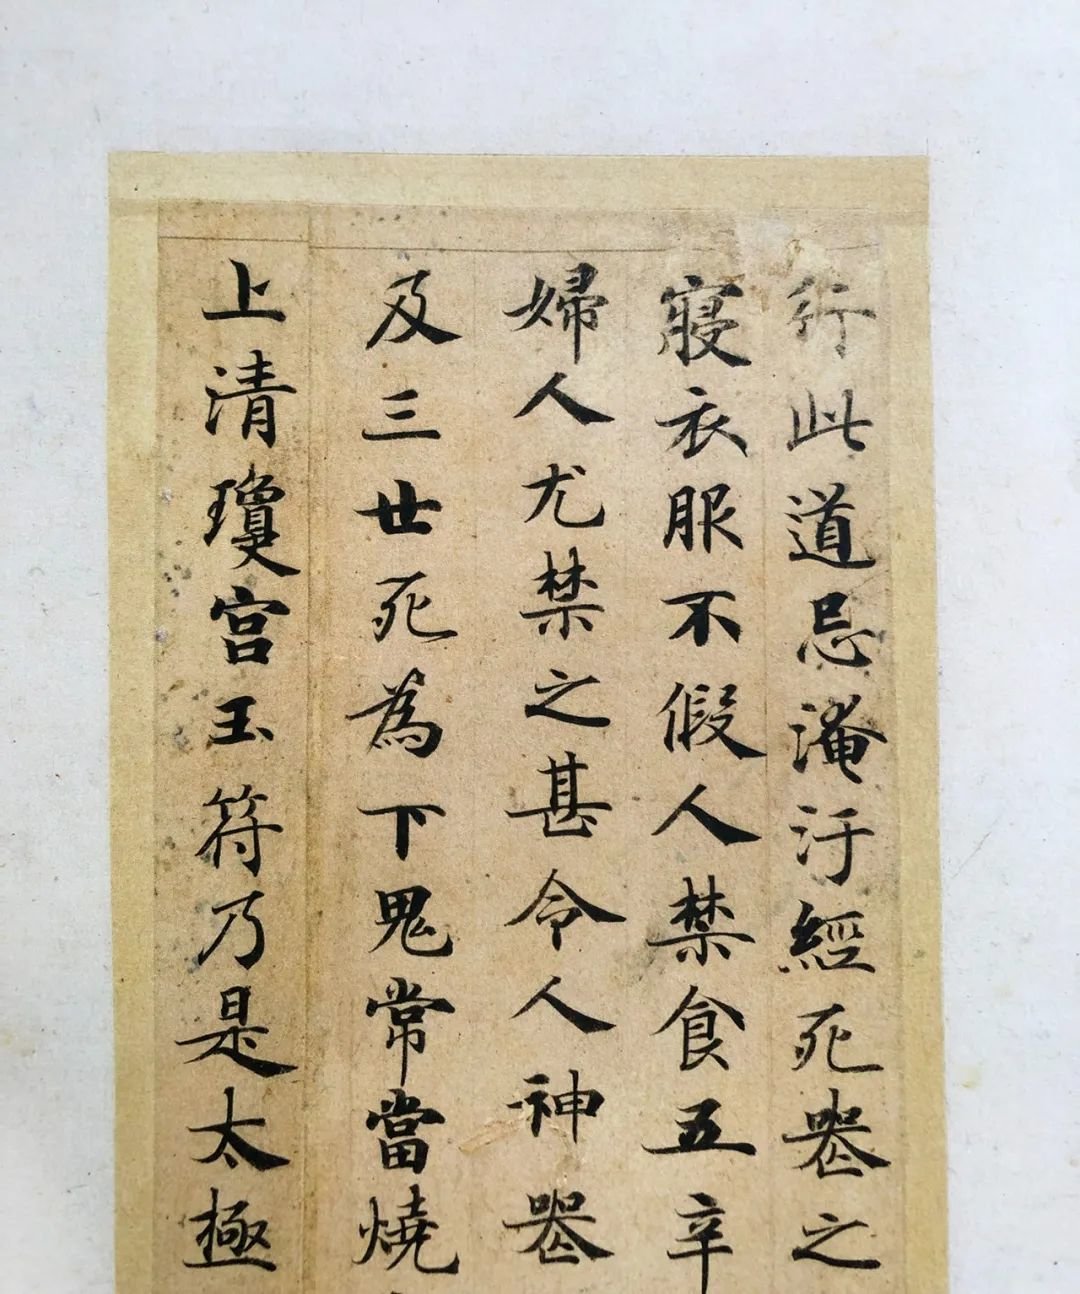 行此道忌淹汙經死喪之
寢衣服不假人禁食五辛
婦人尤禁之甚令人神喪
及三世死為下鬼常當燒
上清瓊宮玉符乃是太極